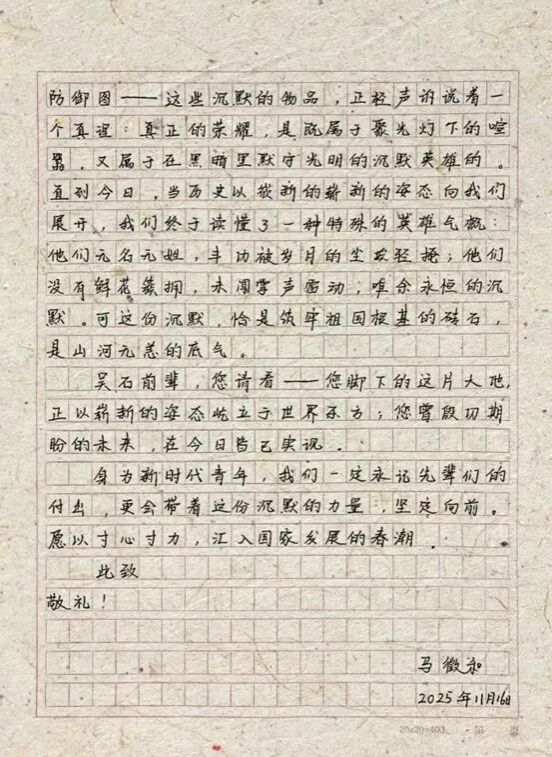 防御图——这些沉默的物品，正轻声诉说着一
个真理：真正的荣耀，是既属于聚光灯下的喧
嚣，又属于在黑暗里默守光明的沉默英雄的。
直到今日，当历史以崭新的崭新的姿态向我们
展开，我们终于读懂了一种特殊的英雄气概：
他们无名无姓，丰功被岁月的尘灰轻掩；他们
没有鲜花簇拥，未闻掌声雷动，唯余永恒的沉
默。可这份沉默，恰是筑牢祖国根基的砖石，
是山河无恙的底气。
吴石前辈，您请看——您脚下的这片大地，
正以崭新的姿态屹立于世界东方；您曾殷切期
盼的未来，在今日皆已实现。
身为新时代青年，我们一定永记先辈们的
付出，更会带着这份沉默的力量，坚定向前。
愿以寸心寸力，汇入国家发展的春潮。
此致
敬礼！
马徵
2025年11月16日
20x20=400 第 页